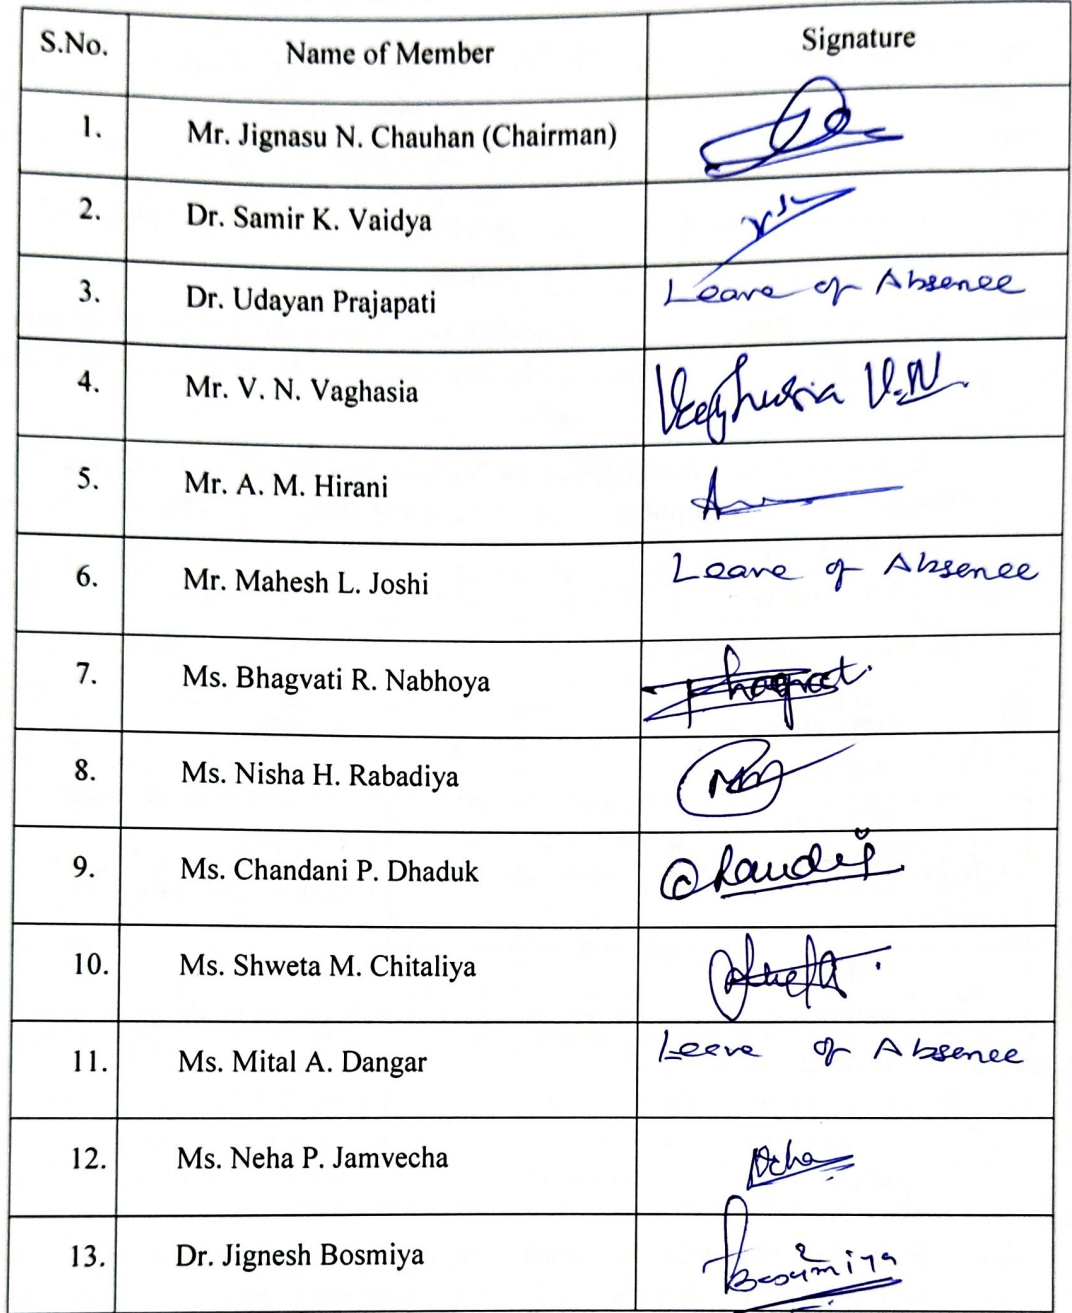 S.No. Name of Member Signature
1. Mr. Jignasu N. Chauhan (Chairman)
2. Dr. Samir K. Vaidya
3. Dr. Udayan Prajapati Leave of Absence
4. Mr. V. N. Vaghasia Vaghasia V.N.
5. Mr. A. M. Hirani
6. Mr. Mahesh L. Joshi Leave of Absence
7. Ms. Bhagvati R. Nabhoya
8. Ms. Nisha H. Rabadiya
9. Ms. Chandani P. Dhaduk
10. Ms. Shweta M. Chitaliya
11. Ms. Mital A. Dangar Leave of Absence
12. Ms. Neha P. Jamvecha Neha
13. Dr. Jignesh Bosmiya Bosamiya